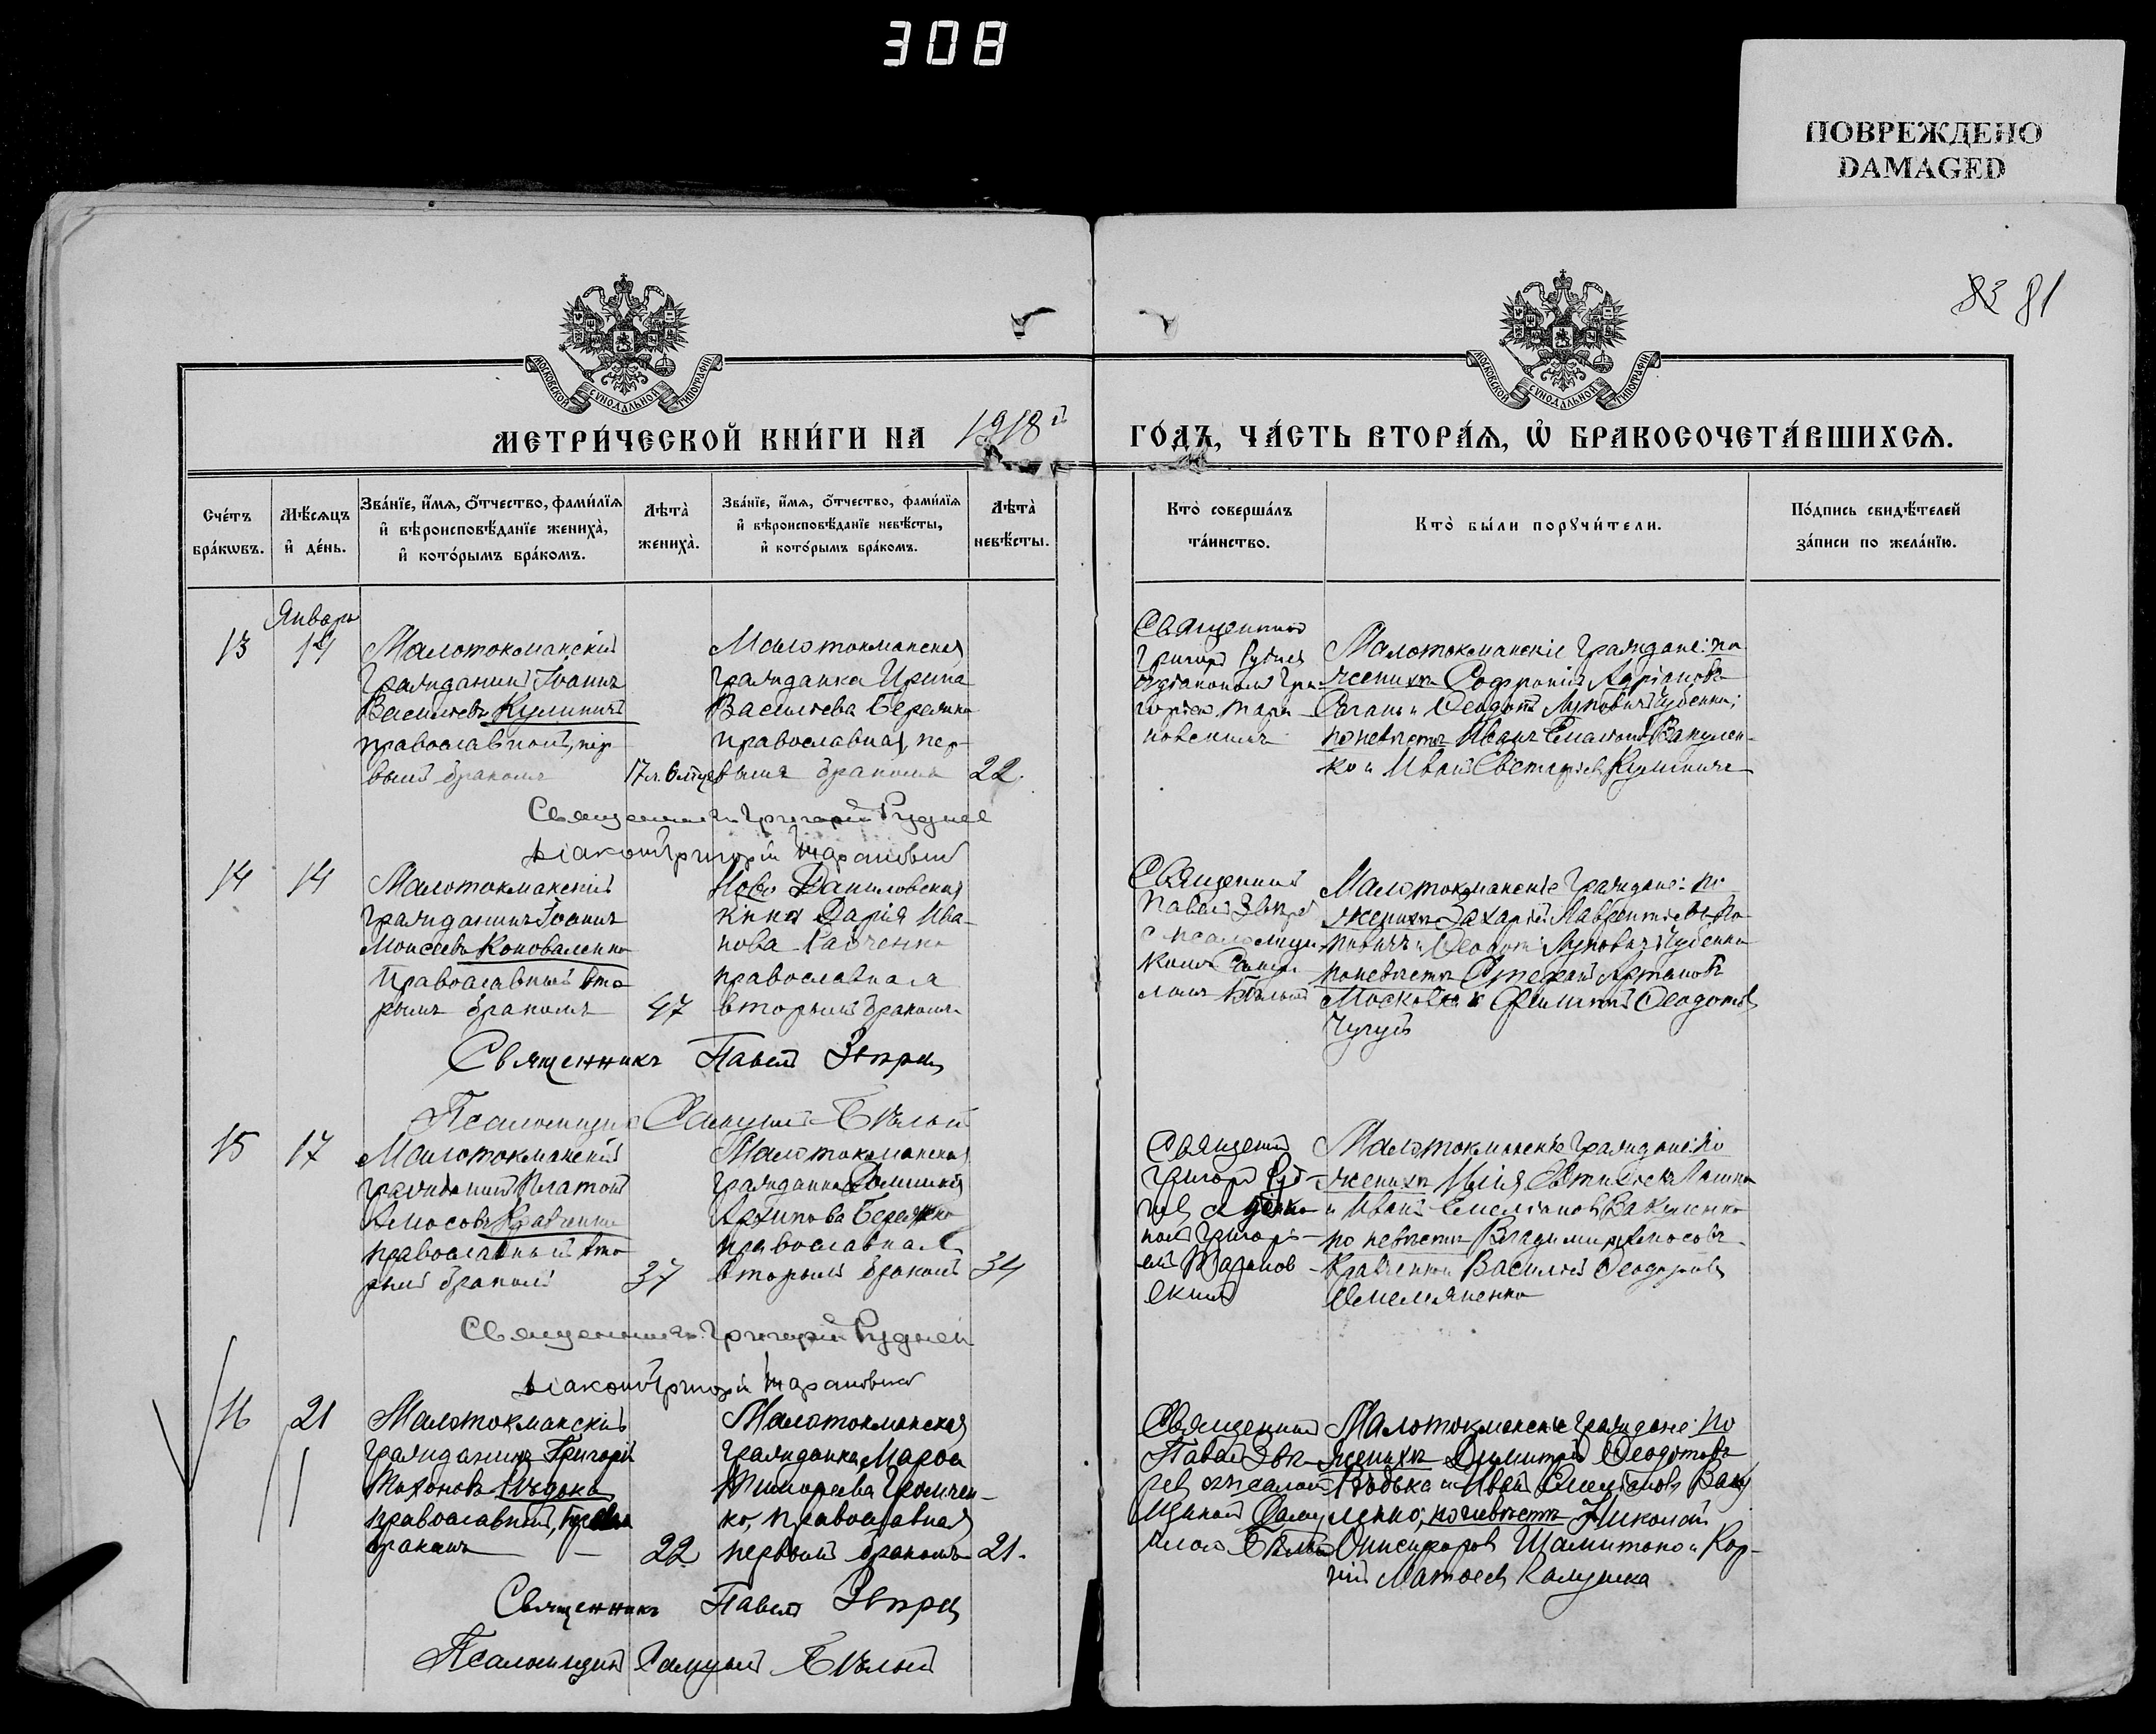 308
ПОВРЕЖДЕНО
DAMAGED
83 81
МОСКОВСКОЙ СѴНОДАЛЬНОЙ ТИПОГРАФІИ
МОСКОВСКОЙ СѴНОДАЛЬНОЙ ТИПОГРАФІИ
МЕТРИ́ЧЕСКОЙ КНИ́ГИ НА 1918й ГО́ДЪ, ЧА́СТЬ ВТОРА́Я, Ѡ҆ БРАКОСОЧЕТА́ВШИХСѦ.
Сче́тъ
бра́кѡвъ.
Мѣ́сяцъ
и҆ де́нь.
Зва́нїе, и҆́мя, о҆́тчество, фами́лїя
и҆ вѣроисповѣ́данїе жениха̀,
и҆ кото́рымъ бра́комъ.
Лѣта̀
жениха̀.
Зва́нїе, и҆́мя, о҆́тчество, фами́лїя
и҆ вѣроисповѣ́данїе невѣ́сты,
и҆ кото́рымъ бра́комъ.
Лѣта̀
невѣ́сты.
Кто̀ соверша́лъ
та́инство.
Кто̀ бы́ли порꙋчи́тели.
По́дпись свидѣ́телей
за́писи по жела́нїю.
Январь
13
14
Малотокмакскій
гражданинъ Іоаннъ
Васильевъ Кулиничъ
православный, пер-
вымъ бракомъ
17 л. 6 мцев
Малотокмакская
гражданка Ирина
Васильева Бережна
православная, пер-
вымъ бракомъ
22.
Священникъ
Григорій Рудневъ
съ діакономъ Гри-
горіем Тара-
новскимъ
Малотокмакскіе граждане: по
женихѣ Софроній Адріановъ
и Ѳеодотъ Луповичъ Губенко;
по невѣстѣ Иванъ Емельяновъ Вакулен-
ко и Иванъ Евстафіевъ Кулиничъ
Священникъ Григорій Рудневъ
Діаконъ Григорій Тарановскій
14
14
Малотокмакскій
гражданинъ Іоаннъ
Моисеевъ Коноваленко
православный вто-
рымъ бракомъ
47
Ново Даниловская
Дарія Ива-
нова
православная
вторымъ бракомъ
Священникъ
Павелъ Звѣрев
с псаломщи-
комъ Саму-
иломъ Бѣлымъ
Малотокмакскіе граждане: по
женихѣ Захарій Лаврентіевъ По-
и Ѳеодотъ Луповичъ Губенко
по невѣстѣ Стефанъ Артамовъ
и Филиппъ Ѳеодотовъ
Чугуй
Священникъ Павелъ Звѣревъ
Псаломщикъ Самуилъ Бѣлый
15
17
Малотокмакскій
гражданинъ Платонъ
Амосовъ Кравченко
православный вто-
рымъ бракомъ
37
Малотокмакская
гражданка Домникія
Архипова Бережна
православная
вторымъ бракомъ
34
Священникъ
Григорій Руд-
невъ съ діако-
номъ Григорі-
емъ Таранов-
скимъ
Малотокмакскіе граждане: по
женихѣ Илія Евтихіевъ
и Иванъ Емельяновъ Вакуленко
по невѣстѣ Владимиръ Амосовъ
Кравченко и Василій Ѳеодоровъ
Омельяненко
Священникъ Григорій Рудневъ
Діаконъ Григорій Тарановскій
16
21
Малотокмакскій
гражданинъ Григорій
Тихоновъ
православный,
бракомъ
22
Малотокмакская
гражданка Марѳа
Тимоѳеева Громчен-
ко, православная
первымъ бракомъ
21.
Священникъ
Павелъ Звѣ-
ревъ съ псалом-
щикомъ Саму-
иломъ Бѣлымъ
Малотокмакскіе граждане: по
женихѣ Димитрій Ѳеодотовъ
и Иванъ Емельяновъ Ваку-
ленко; по невѣстѣ Николай
Онисифоровъ и Кор-
ній Матвеевъ Калушка
Священникъ Павелъ Звѣревъ
Псаломщикъ Самуилъ Бѣлый